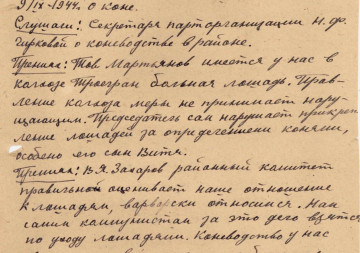 9/IX-1944г. о коне.
Слушали: Секретаря парторганизации Н.Ф.
Гирковой о коневодстве в районе.
Прения: Тов Мартьянов имеется у нас в
колхозе больная лошадь. Прав-
ление колхоза меры не принимает нару-
щающим. Председатель сам нарушает прикреп
ление лошадей за определенными конями,
особено его сын Витя.
Прения: В.Я. Захаров районный комитет
правильно оценивает наше отношение
к лошадям, варварски относимся. Нам
самим коммунистам за это дело взяться
по уходу лошадями. Коневодство у нас